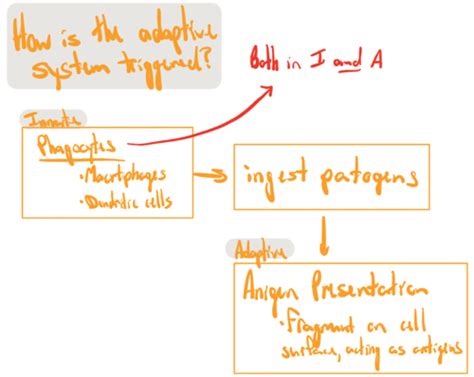 How is the adaptive
system triggered?
Both in I and A
Innate
Phagocytes
• Macrophages
• Dendritic cells
ingest patogens
Adaptive
Anigen Presentation
• Fragment on cell
surface, acting as antigens